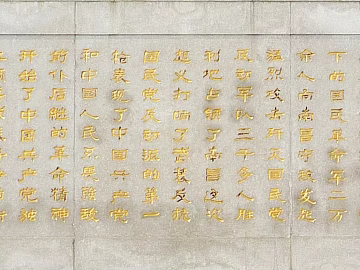 下的国民革命军二万
余人向南昌守敌发起
猛烈攻击歼灭国民党
反动军队三千余人胜
利地占领了南昌这次
起义打响了武装反抗
国民党反动派的第一
枪表现了中国共产党
和中国人民不畏强敌
前仆后继的革命精神
开始了中国共产党独